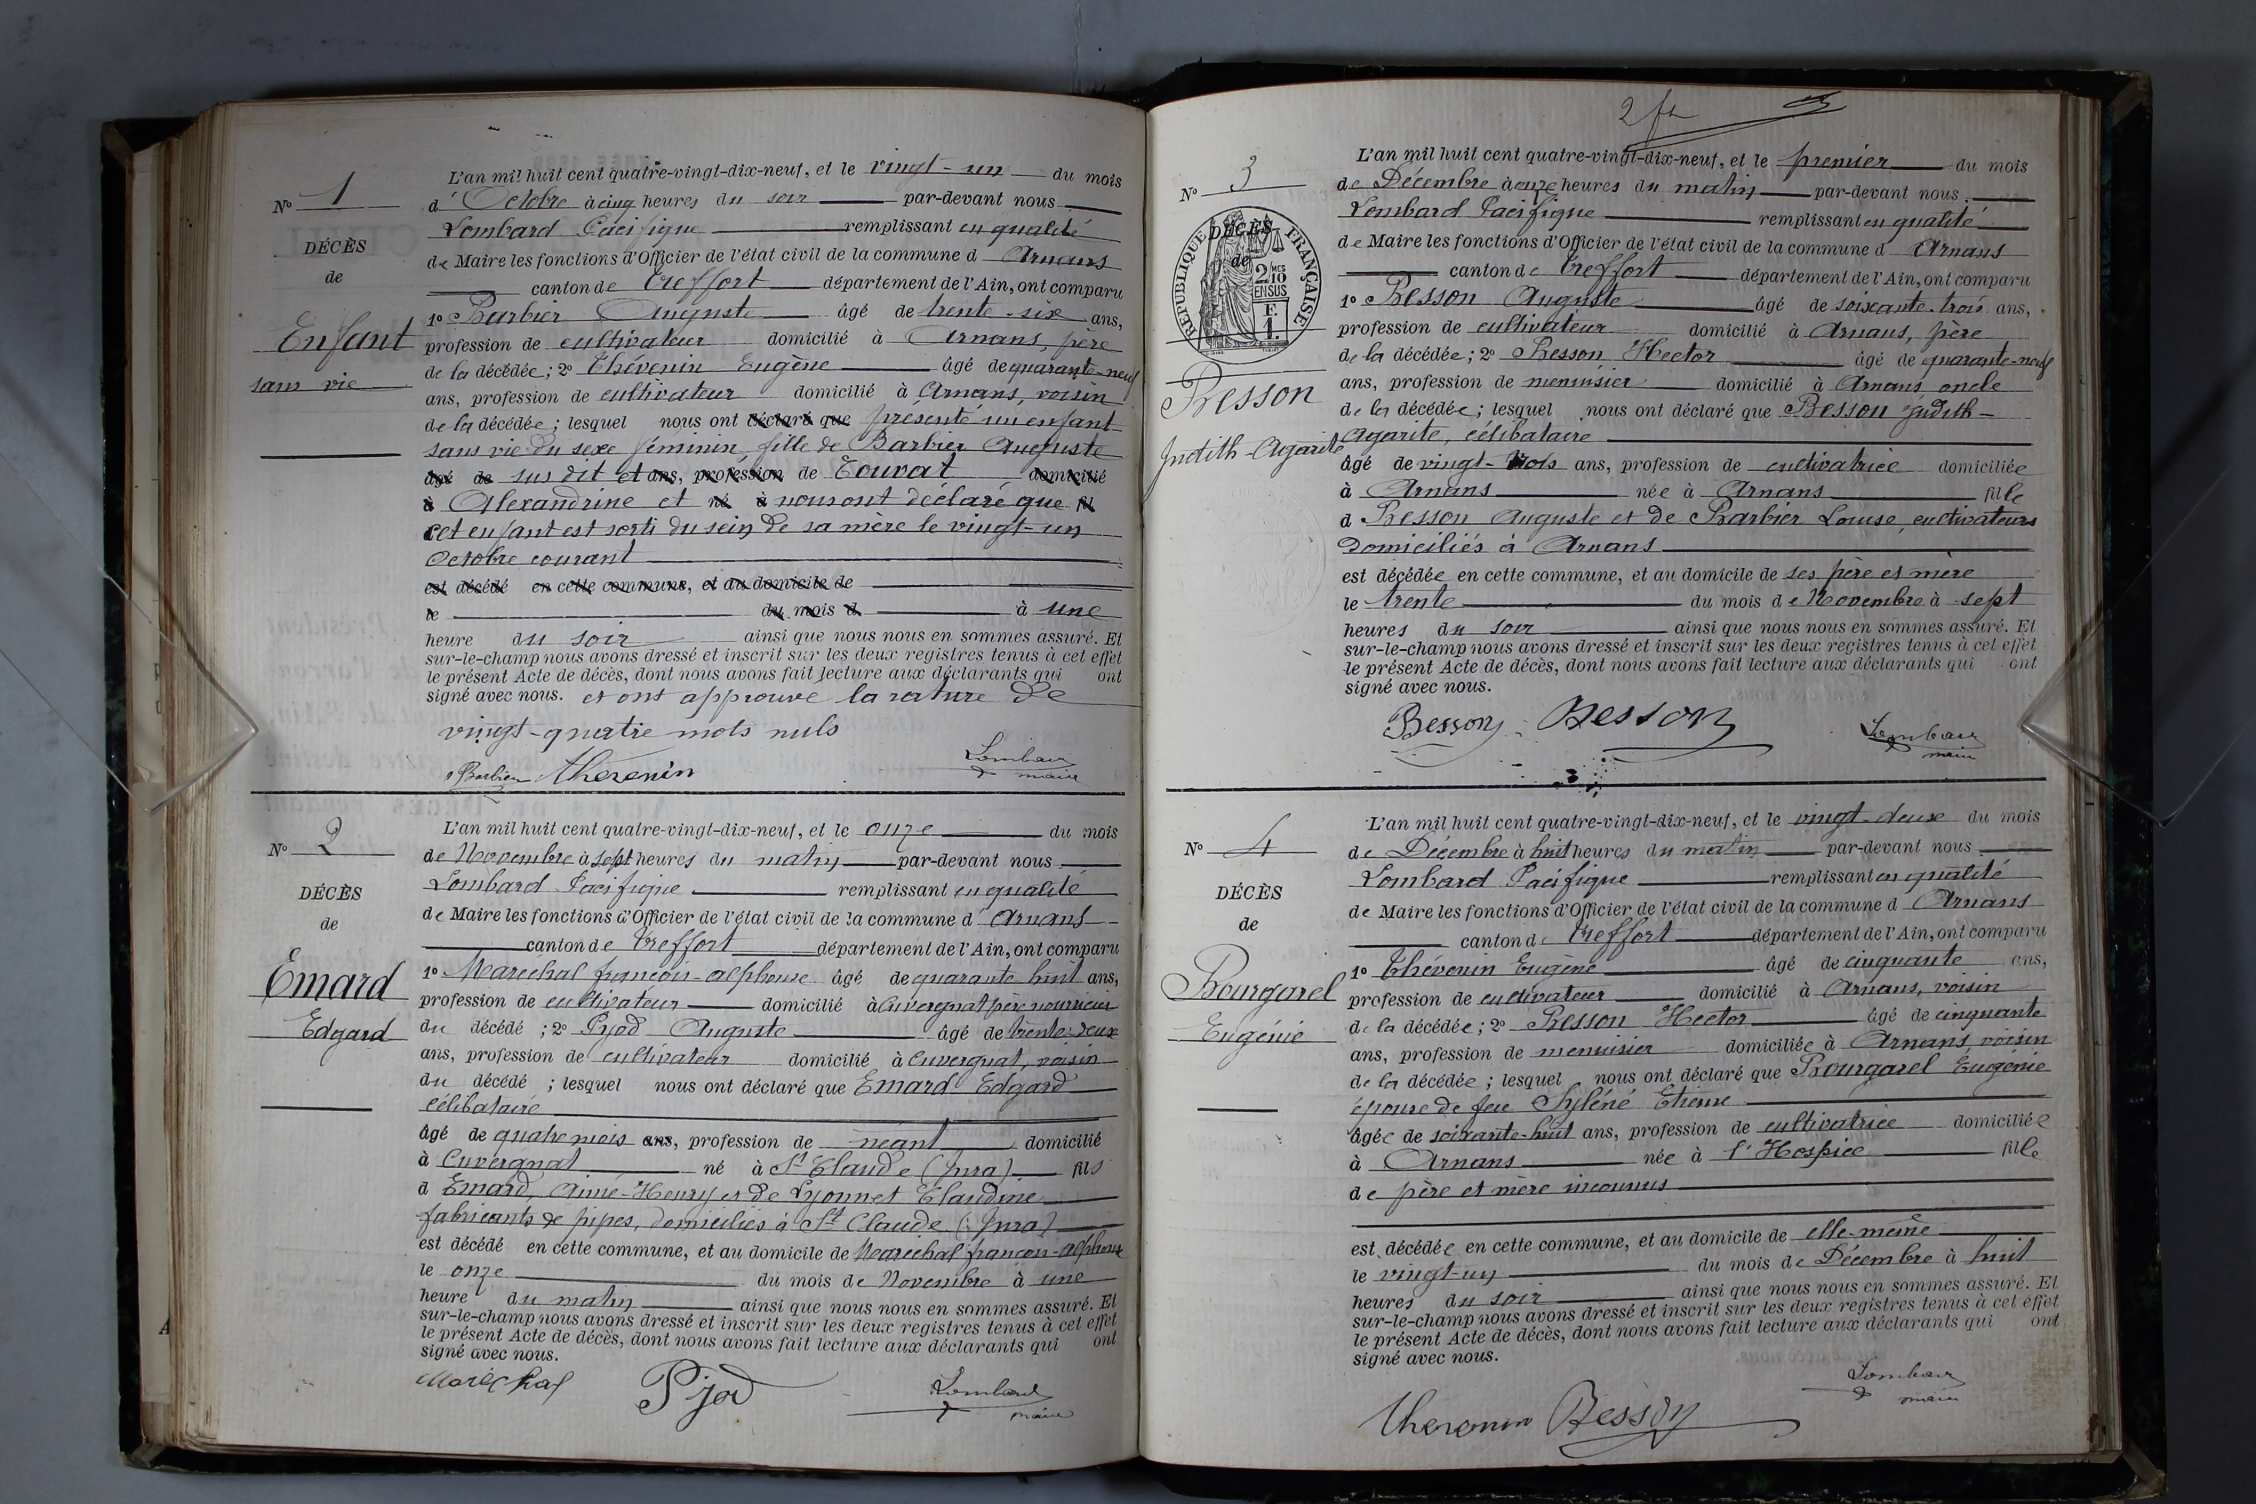 N° 1
DÉCÈS
de
Enfant
sans vie
L'an mil huit cent quatre-vingt-dix-neuf, et le vingt-un du mois
d'Octobre à cinq heures du soir par-devant nous
Lombard Pacifique remplissant en qualité
de Maire les fonctions d'Officier de l'état civil de la commune d Arnans
canton de Treffort département de l'Ain, ont comparu
1° Barbier Auguste âgé de trente-six ans,
profession de cultivateur domicilié à Arnans, père
de la décédée; 2° Thévenin Eugène âgé de quarante-neuf
ans, profession de cultivateur domicilié à Arnans, voisin
de la décédée; lesquel nous ont déclaré que présenté un enfant
sans vie du sexe féminin, fille de Barbier Auguste
âgé de sus dit et ans, profession de Touvat domicilié
à Alexandrine et né à nous ont déclaré que fil
cet enfant est sorti du sein de sa mère le vingt-un
Octobre courant
est décédé en cette commune, et au domicile de
le du mois d à une
heure du soir ainsi que nous nous en sommes assuré. Et
sur-le-champ nous avons dressé et inscrit sur les deux registres tenus à cet effet
le présent Acte de décès, dont nous avons fait lecture aux déclarants qui ont
signé avec nous. et ont approuvé la rature de
vingt-quatre mots nuls
Barbier Thevenin Lombard
maire
N° 2
DÉCÈS
de
Emard
Edgard
L'an mil huit cent quatre-vingt-dix-neuf, et le onze du mois
de Novembre à sept heures du matin par-devant nous
Lombard Pacifique remplissant en qualité
de Maire les fonctions d'Officier de l'état civil de la commune d' Arnans
canton de Treffort département de l'Ain, ont comparu
1° Maréchal françois-alphonse âgé de quarante huit ans,
profession de cultivateur domicilié à Cuvergnat père nourricier
du décédé; 2° Pyod Auguste âgé de trente-deux
ans, profession de cultivateur domicilié à Cuvergnat, voisin
du décédé; lesquel nous ont déclaré que Emard Edgard
célibataire
âgé de quatre mois ans, profession de néant domicilié
à Cuvergnat né à St Claude (Jura) fils
d Emard, Aimé-Henry et de Lyonnet Claudine
fabricants de pipes, domiciliés à St Claude (Jura)
est décédé en cette commune, et au domicile de Maréchal françois-alphonse
le onze du mois de Novembre à une
heure du matin ainsi que nous nous en sommes assuré. Et
sur-le-champ nous avons dressé et inscrit sur les deux registres tenus à cet effet
le présent Acte de décès, dont nous avons fait lecture aux déclarants qui ont
signé avec nous.
Maréchal Pjod Lombard
maire
2 fr
N° 3
RÉPUBLIQUE FRANÇAISE
DÉCÈS
de
2/10 MES
EN SUS
F.
1.
Besson
Judith-Agarite
L'an mil huit cent quatre-vingt-dix-neuf, et le premier du mois
de Décembre à onze heures du matin par-devant nous
Lombard Pacifique remplissant en qualité
de Maire les fonctions d'Officier de l'état civil de la commune d Arnans
canton de Treffort département de l'Ain, ont comparu
1° Besson Auguste âgé de soixante-trois ans,
profession de cultivateur domicilié à Arnans, père
de la décédée; 2° Besson Hector âgé de quarante-neuf
ans, profession de menuisier domicilié à Arnans oncle
de la décédée; lesquel nous ont déclaré que Besson Judith-
Agarite, célibataire
âgé de vingt-trois ans, profession de cultivatrice domiciliée
à Arnans née à Arnans fille
d Besson Auguste et de Barbier Louise, cultivateurs
domiciliés à Arnans
est décédée en cette commune, et au domicile de ses père et mère
le trente du mois de Novembre à sept
heures du soir ainsi que nous nous en sommes assuré. Et
sur-le-champ nous avons dressé et inscrit sur les deux registres tenus à cet effet
le présent Acte de décès, dont nous avons fait lecture aux déclarants qui ont
signé avec nous.
Besson Besson Lombard
maire
N° 4
DÉCÈS
de
Bourgarel
Eugénie
L'an mil huit cent quatre-vingt-dix-neuf, et le vingt-deux du mois
de Décembre à huit heures du matin par-devant nous
Lombard Pacifique remplissant en qualité
de Maire les fonctions d'Officier de l'état civil de la commune d Arnans
canton de Treffort département de l'Ain, ont comparu
1° Thévenin Eugène âgé de cinquante ans,
profession de cultivateur domicilié à Arnans, voisin
de la décédée; 2° Besson Hector âgé de cinquante
ans, profession de menuisier domiciliée à Arnans, voisin
de la décédée; lesquel nous ont déclaré que Bourgarel Eugénie
épouse de feu Syléné Etienne
âgée de soixante-huit ans, profession de cultivatrice domiciliée
à Arnans née à l'Hospice fille
de père et mère inconnus
est décédée en cette commune, et au domicile de elle-même
le vingt-un du mois de Décembre à huit
heures du soir ainsi que nous nous en sommes assuré. Et
sur-le-champ nous avons dressé et inscrit sur les deux registres tenus à cet effet
le présent Acte de décès, dont nous avons fait lecture aux déclarants qui ont
signé avec nous.
Thevenin Besson Lombard
maire